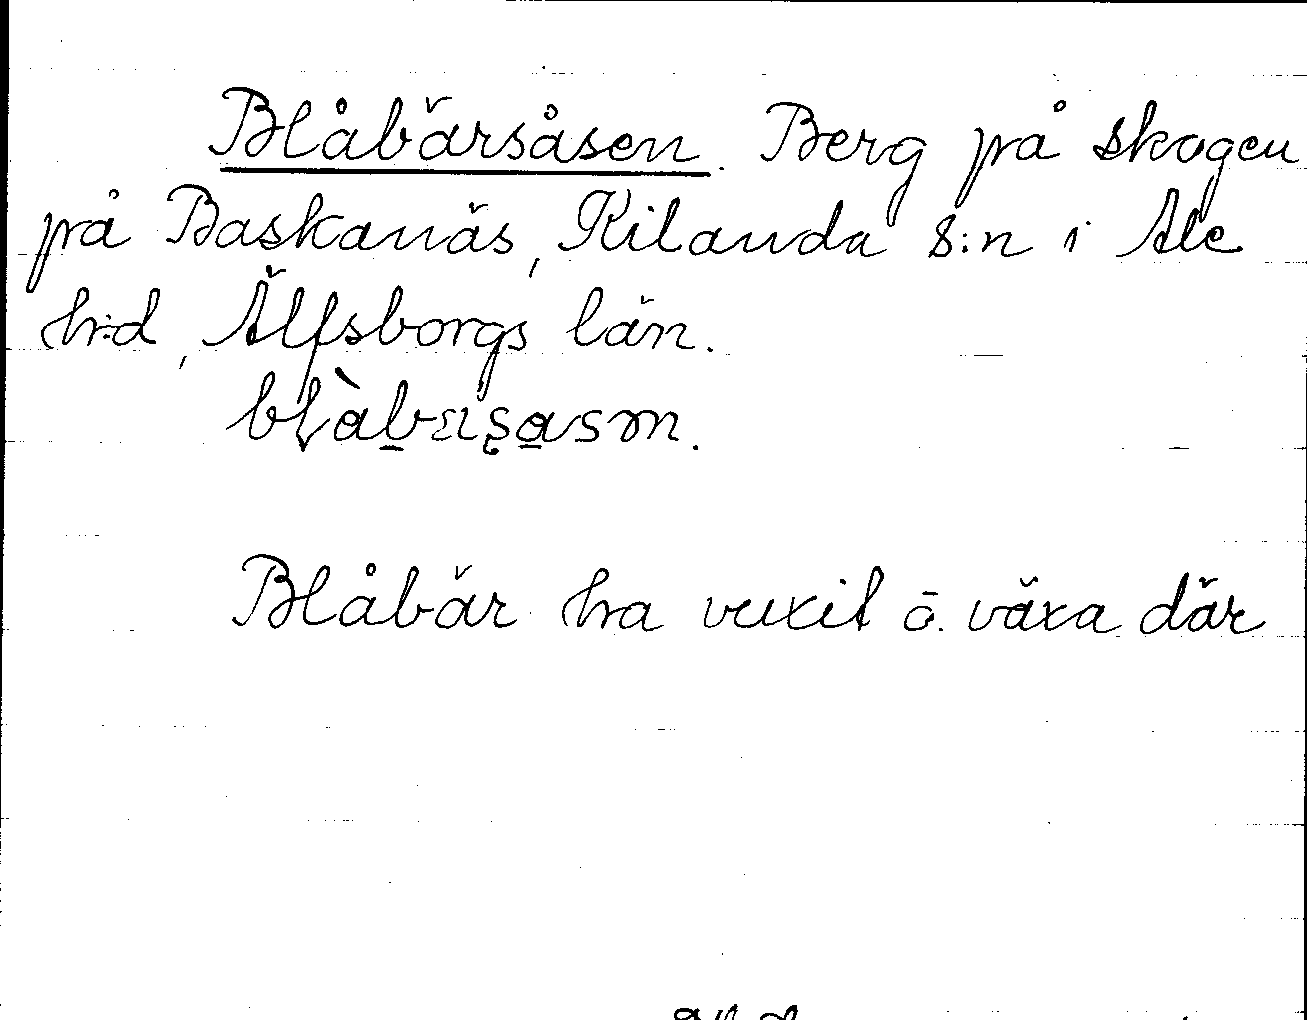 Blåbärsåsen. Berg på skogen
på Baskanäs, Kilanda s:n i Ale
h:d, Älfsborgs län.
Blåbär ha vuxit o. växa där